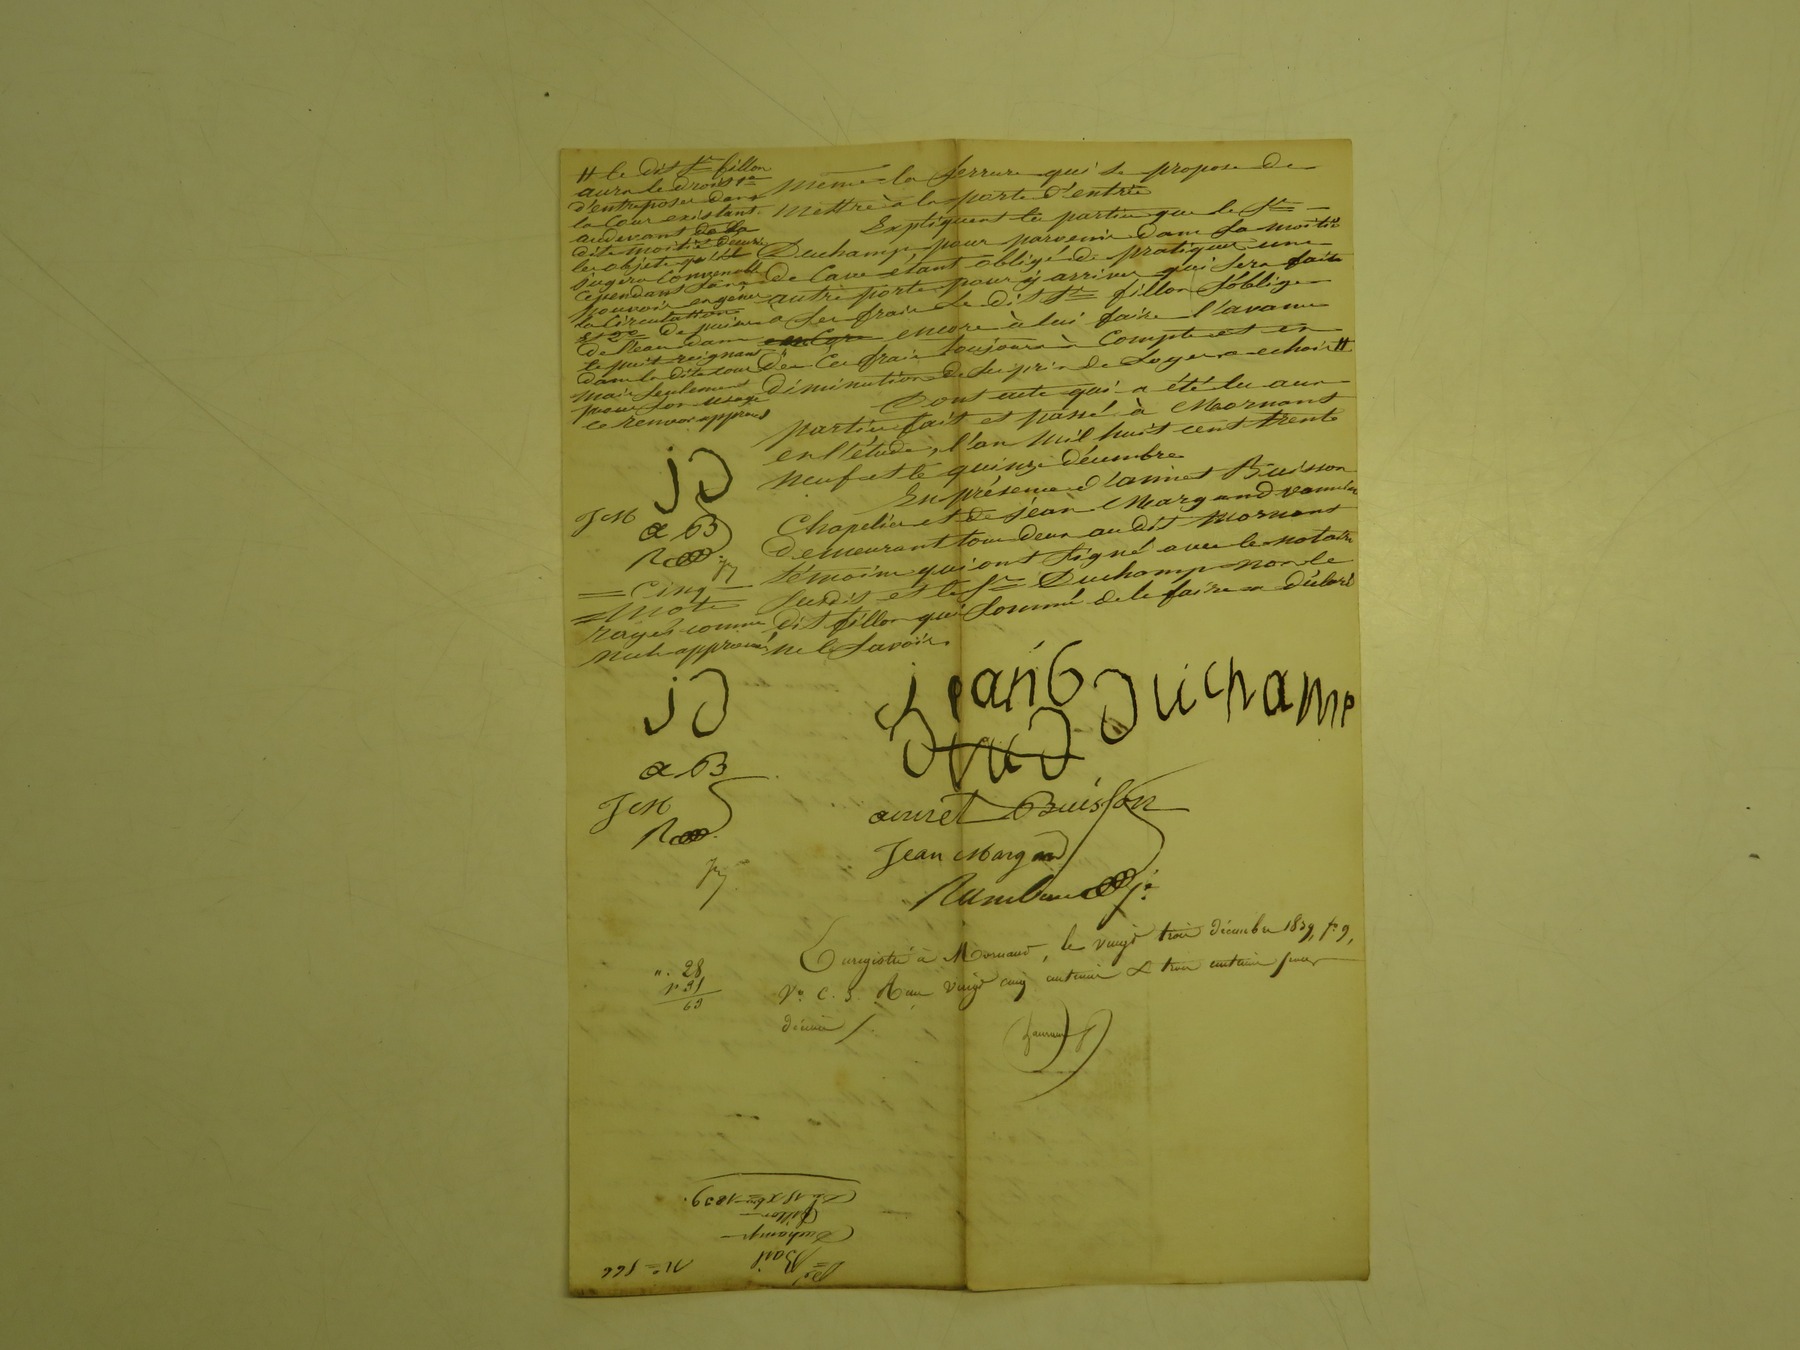 même la serrure qui se propose de
mettre à la porte d'entrée
Expliquent les parties que le Sr
Duchamp, pour parvenir dans la moitié
de Cave étant obligé de pratiquer une
autre porte pour y arriver qui sera faite
à ses frais le dit Sr fillon s'oblige
encore à lui faire l'avance
de Ces frais toujours à Compte et en
diminution de ses prix de Loyers a echoir #
Dont acte qui a été lu aux
parties fait et passé à Mornant
en l'étude, l'an mil huit cent trente
neuf et le quinze décembre
En présence d'annet Buisson
Chapelier et de jean Margand vannier
demeurant tous deux au dit Mornant
témoins qui ont signé avec le notaire
susdit et le Sr Duchamp non le
dit fillon qui sommé de le faire a déclaré
ne le savoir.
# le dit Sr fillon
aura le droit 1o
d'entreposer dans
la Cour existant
audevant de la
dite moitié deux
les objets qu'il
jugera Convenable
Cependant sans
pouvoir en gêner
la Circulation
Et 2o de puiser
de l'eau dans
le puit reignant
dans la dite cour
mais seulement
pour son usage
ce renvoi approuvé
jD
JM
aB
R
= Cinq
= Mots
rayés comme
nuls approuvés
jD
aB
JM
R
jean Duchamp
annet Buisson
Jean Margand
Enregistré à Mornant, le vingt trois décembre 1839, fo 9,
Vo C. 5. Reçu vingt cinq centimes & trois centimes pour
décime
28
31
63
No 566
Bail
Duchamp
fillon
Du 15 Xbre 1839.